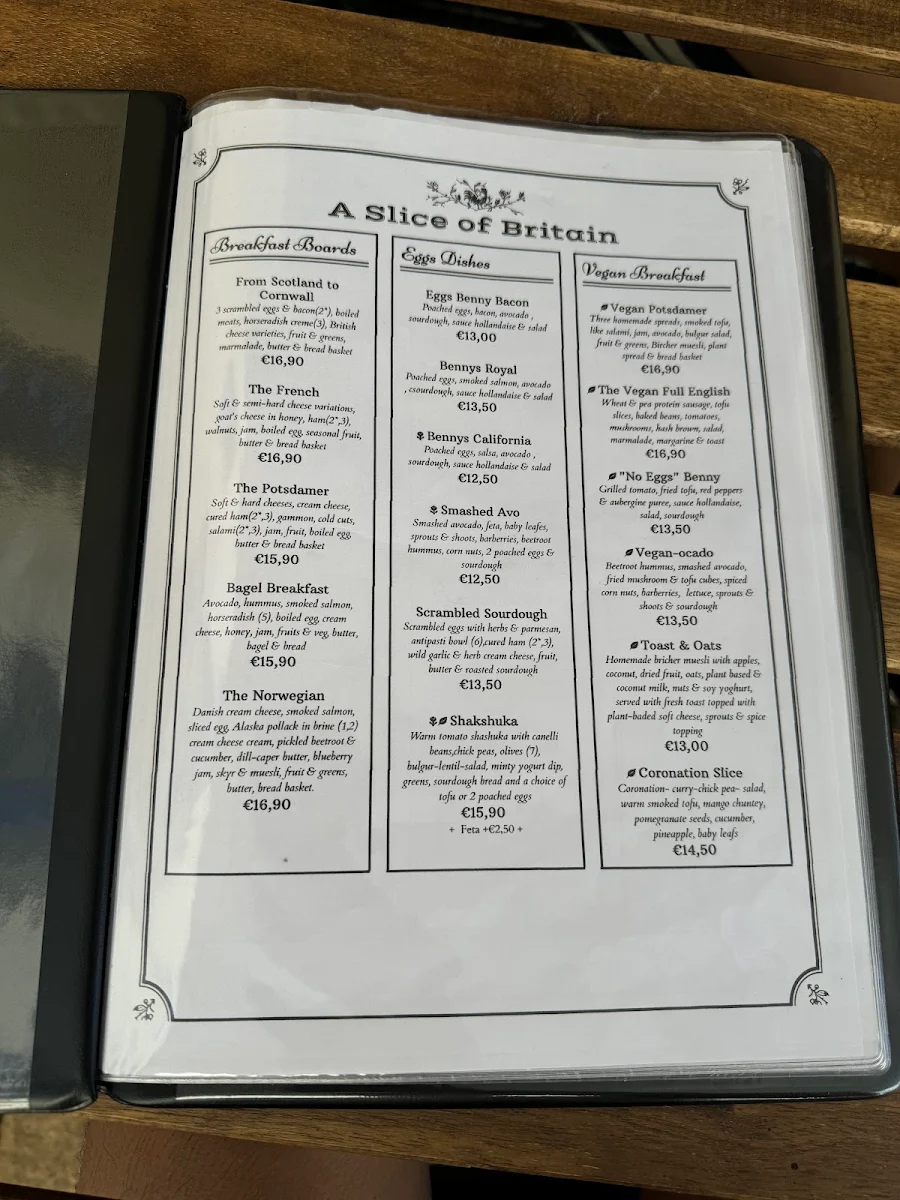 A Slice of Britain
Breakfast Boards
From Scotland to
Cornwall
3 scrambled eggs & bacon(2*), boiled
meats, horseradish creme(3), British
cheese varieties, fruit & greens,
marmalade, butter & bread basket
€16,90
The French
Soft & semi-hard cheese variations,
goat's cheese in honey, ham(2*,3),
walnuts, jam, boiled egg, seasonal fruit,
butter & bread basket
€16,90
The Potsdamer
Soft & hard cheeses, cream cheese,
cured ham(2*,3), gammon, cold cuts,
salami(2*,3), jam, fruit, boiled egg,
butter & bread basket
€15,90
Bagel Breakfast
Avocado, hummus, smoked salmon,
horseradish (5), boiled egg, cream
cheese, honey, jam, fruits & veg, butter,
bagel & bread
€15,90
The Norwegian
Danish cream cheese, smoked salmon,
sliced egg, Alaska pollack in brine (1,2)
cream cheese cream, pickled beetroot &
cucumber, dill-caper butter, blueberry
jam, skyr & muesli, fruit & greens,
butter, bread basket.
€16,90
Eggs Dishes
Eggs Benny Bacon
Poached eggs, bacon, avocado ,
sourdough, sauce hollandaise & salad
€13,00
Bennys Royal
Poached eggs, smoked salmon, avocado
, csourdough, sauce hollandaise & salad
€13,50
Bennys California
Poached eggs, salsa, avocado ,
sourdough, sauce hollandaise & salad
€12,50
Smashed Avo
Smashed avocado, feta, baby leafes,
sprouts & shoots, barberries, beetroot
hummus, corn nuts, 2 poached eggs &
sourdough
€12,50
Scrambled Sourdough
Scrambled eggs with herbs & parmesan,
antipasti bowl (6),cured ham (2*,3),
wild garlic & herb cream cheese, fruit,
butter & roasted sourdough
€13,50
Shakshuka
Warm tomato shashuka with canelli
beans,chick peas, olives (7),
bulgur-lentil-salad, minty yogurt dip,
greens, sourdough bread and a choice of
tofu or 2 poached eggs
€15,90
+ Feta +€2,50 +
Vegan Breakfast
Vegan Potsdamer
Three homemade spreads, smoked tofu,
like salami, jam, avocado, bulgur salad,
fruit & greens, Bircher muesli, plant
spread & bread basket
€16,90
The Vegan Full English
Wheat & pea protein sausage, tofu
slices, baked beans, tomatoes,
mushrooms, hash brown, salad,
marmalade, margarine & toast
€16,90
"No Eggs" Benny
Grilled tomato, fried tofu, red peppers
& aubergine puree, sauce hollandaise,
salad, sourdough
€13,50
Vegan-ocado
Beetroot hummus, smashed avocado,
fried mushroom & tofu cubes, spiced
corn nuts, barberries, lettuce, sprouts &
shoots & sourdough
€13,50
Toast & Oats
Homemade bricher muesli with apples,
coconut, dried fruit, oats, plant based &
coconut milk, nuts & soy yoghurt,
served with fresh toast topped with
plant-baded soft cheese, sprouts & spice
topping
€13,00
Coronation Slice
Coronation- curry-chick pea- salad,
warm smoked tofu, mango chuntey,
pomegranate seeds, cucumber,
pineapple, baby leafs
€14,50